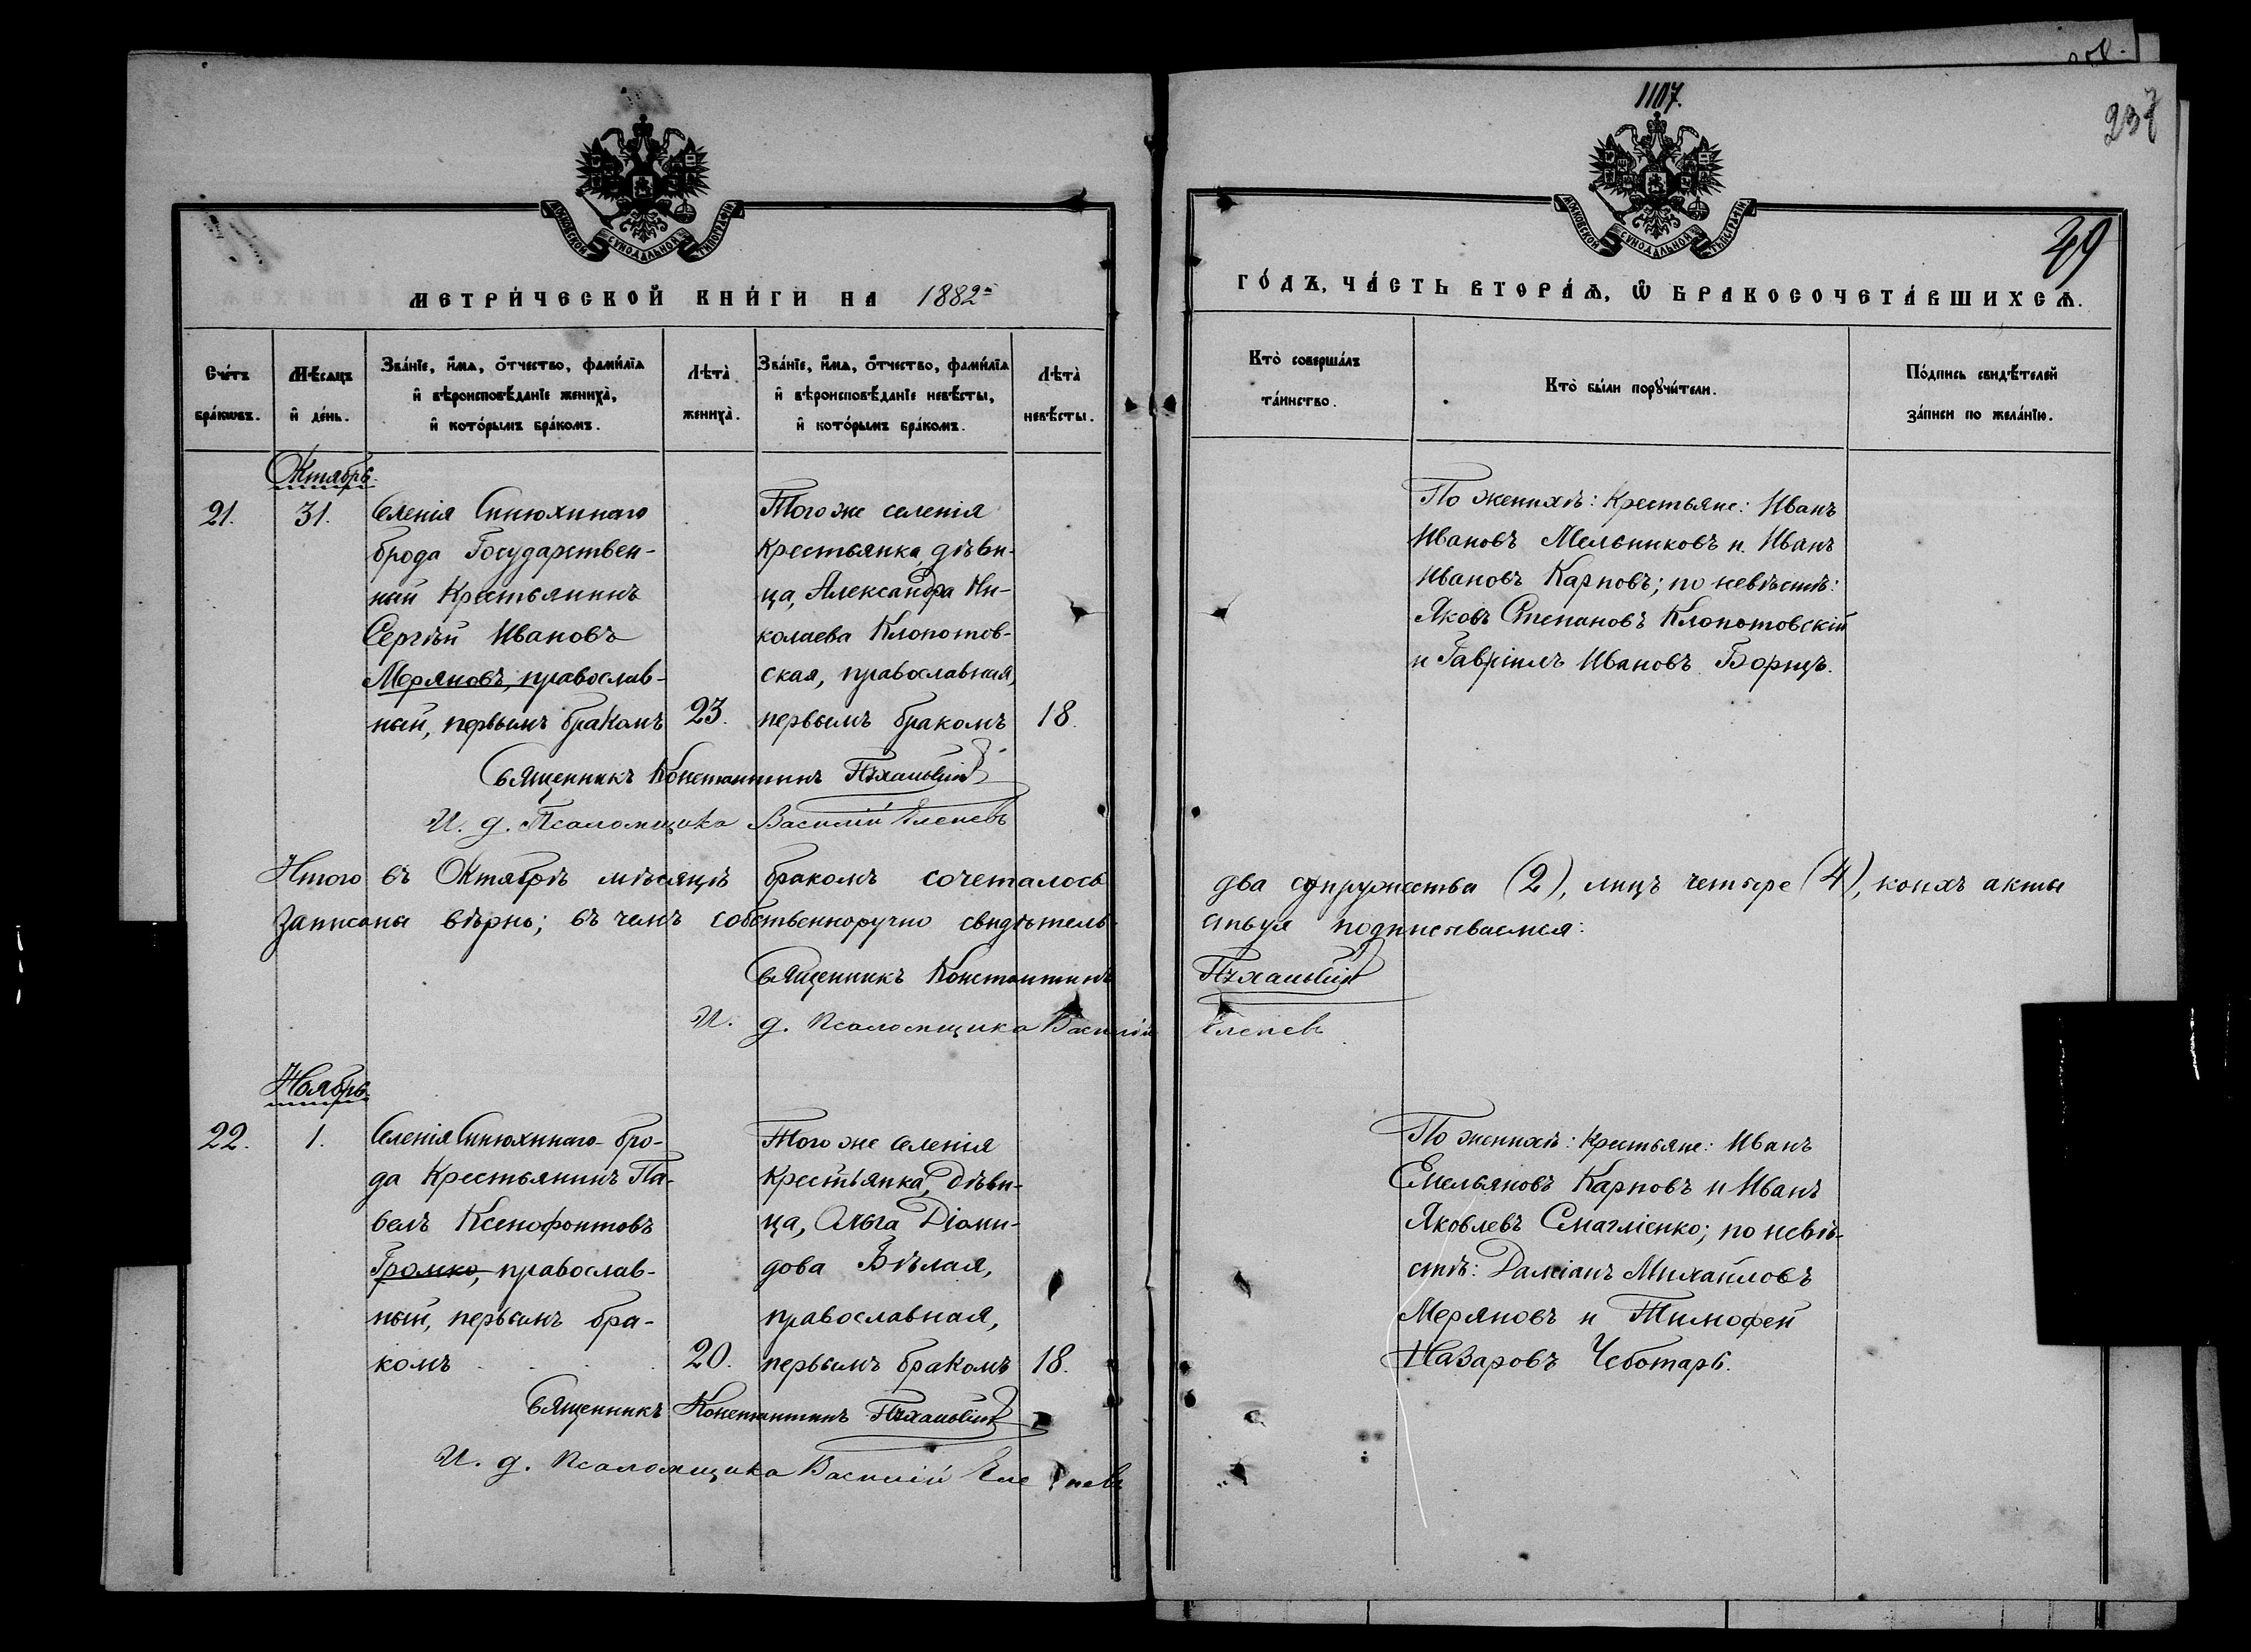 1107.
237
49
МОСКОВСКОЙ СѴНОДАЛЬНОЙ ТИПОГРАФІИ
МОСКОВСКОЙ СѴНОДАЛЬНОЙ ТИПОГРАФІИ
МЕТРИ́ЧЕСКОЙ КНИ́ГИ НА 1882й
ГО́ДЪ, ЧА́СТЬ ВТОРА́Ѧ, Ѡ҆ БРАКОСОЧЕТА́ВШИХСѦ.
Сче́тъ бра́кѡвъ.
Мѣ́сѧцъ и҆ де́нь.
Зва́нїе, и҆́мѧ, ѻ҆́тчество, фами́лїѧ
и҆ вѣроисповѣ́данїе жениха̀,
и҆ кото́рымъ бра́комъ.
Лѣта̀ жениха̀.
Зва́нїе, и҆́мѧ, ѻ҆́тчество, фами́лїѧ
и҆ вѣроисповѣ́данїе невѣ́сты,
и҆ кото́рымъ бра́комъ.
Лѣта̀ невѣ́сты.
Кто̀ соверша́лъ та́инство.
Кто̀ бы́ли порꙋчи́тели.
По́дпись свидѣ́телей
за́писи по жела́нїю.
Октябрь.
21. 31.
Селенія Синюхинаго
брода Государствен-
ный Крестьянинъ
Сергѣй Ивановъ
Меряновъ, православ-
ный, первымъ бракомъ 23.
Того же селенія
Крестьянка, дѣви-
ца, Александра Ни-
колаева Клопотов-
ская, православная,
первымъ бракомъ 18.
По женихѣ: Крестьяне: Иванъ
Ивановъ Мельниковъ и Иванъ
Ивановъ Карповъ; по невѣстѣ:
Яковъ Степановъ Клопотовскій
и Гавріилъ Ивановъ Борщъ.
Священникъ Константинъ
И. д. Псаломщика Василій
Итого въ Октябрѣ мѣсяцѣ бракомъ сочеталось два супружества (2), лицъ четыре (4), коихъ акты
записаны вѣрно; въ чемъ собственноручно свидѣтель-ствуя подписываемся:
Священникъ Константинъ
И. д. Псаломщика Василій
Ноябрь.
22. 1.
Селенія Синюхинаго бро-
да Крестьянинъ Па-
велъ Ксенофонтовъ
Громко, православ-
ный, первымъ бра-
комъ 20.
Того же селенія
Крестьянка, дѣви-
ца, Ольга Діоми-
дова Бѣлая,
православная,
первымъ бракомъ 18.
По женихѣ: Крестьяне: Иванъ
Емельяновъ Карповъ и Иванъ
Яковлевъ Смагліенко; по невѣ-
стѣ: Даміанъ Михайловъ
Меряновъ и Тимофей
Назаровъ Чеботарь.
Священникъ Константинъ
И. д. Псаломщика Василій